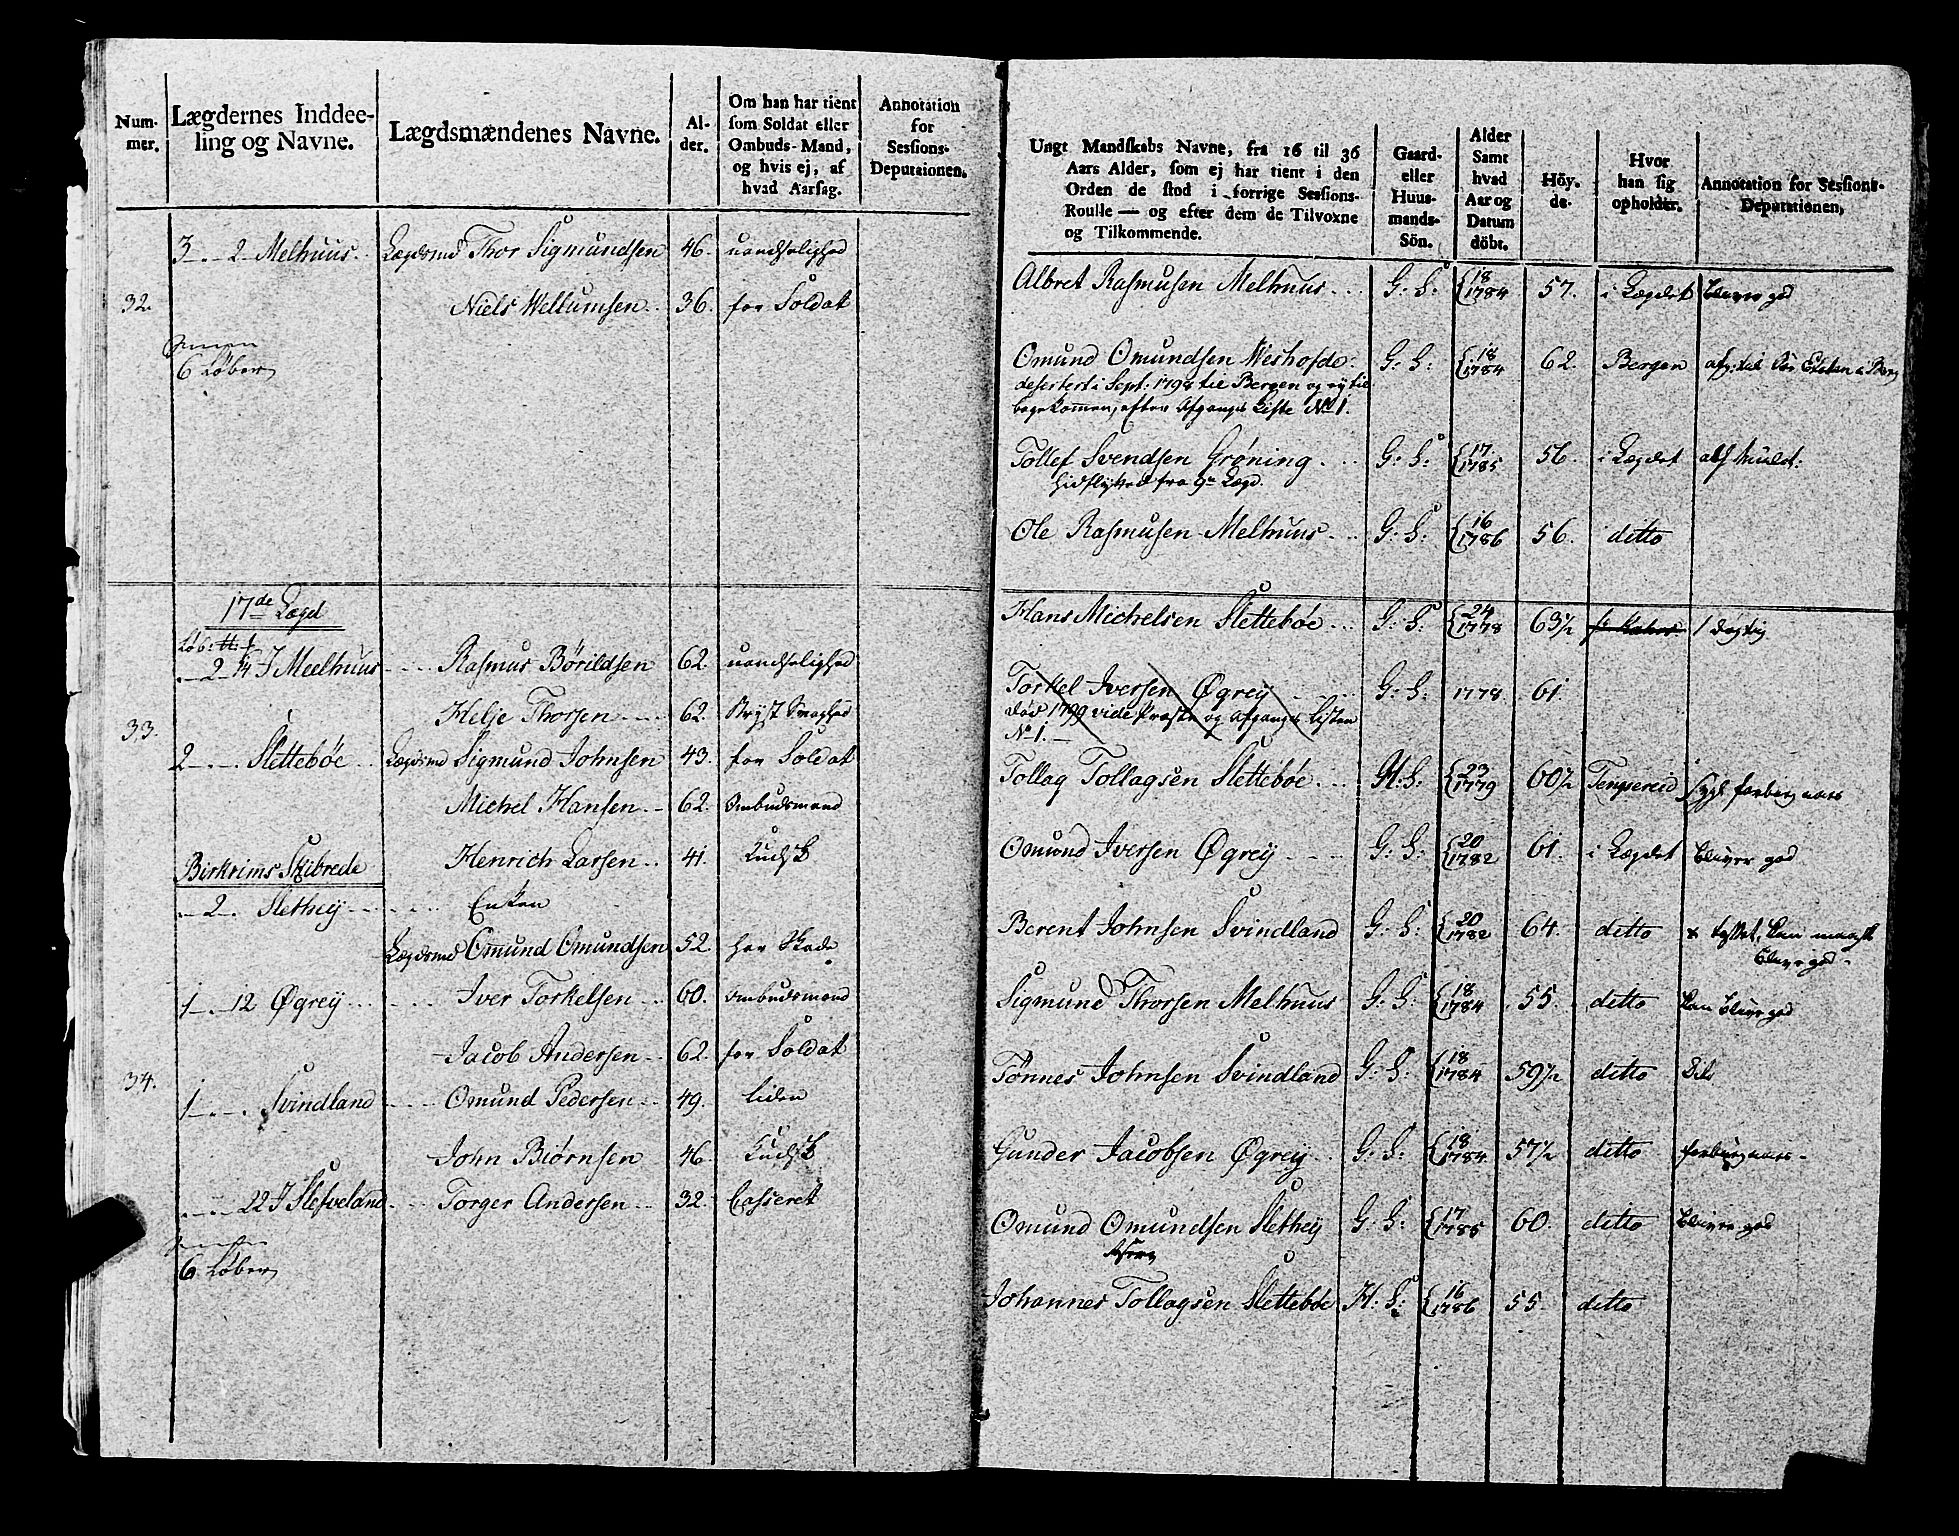 Num-
mer.
Lægdernes Inddee-
ling og Navne.
Lægdsmændenes Navne.
Al-
der.
Om han har tient
som Soldat eller
Ombuds-Mand,
og hvis ej, af
hvad Aarsag.
Annotation
for
Sessions-
Deputationen.
3 2 Melhuus Lægdsmd Thor Sigmundsen 46. uandseelighed
32. Niels Wellumsen 36. for Soldat
6 Løber
17de Lægd
2 Meelhuus Rasmus Børildsen 62. uandseelighed
Helje Thorsen 62. Bryst Svaghed
33.
2 Slettebøe Lægdsmd Sigmund Johnsen 43. for Soldat
Michel Hansen 62. Ombudsmand
Birkrims Skibrede Henrich Larsen 41.
2 Slethey Enken
Lægdsmd Omund Omundsen 52. har Skade
1 12 Øgrey Iver Torkelsen 60. Ombudsmand
Jacob Andersen 62. for Soldat
34.
1 Svindland Omund Pedersen 49. liden
John Biørnsen 46.
22 Slefveland Torger Andersen 32. Casseret
6 Løber
Ungt Mandskabs Navne, fra 16 til 36
Aars Alder, som ej har tient i den
Orden de stod i forrige Sessions-
Roulle — og efter dem de Tilvoxne
og Tilkommende.
Gaard-
eller
Huus-
mands-
Sön.
Alder
Samt
hvad
Aar og
Datum
döbt.
Höy-
de.
Hvor
han sig
opholder.
Annotation for Sessions-
Deputationen,
Albret Rasmusen Melhuus G: S: 18 1784 57. i Lægdet bliver god
Omund Omundsen Weshofde G: S: 18 1784 62. Bergen
desertert i Sept. 1798 til Bergen og ej til
bagekommen, efter Afgangs Liste No 1.
Tollef Svendsen Grøning G: S: 17 1785 56. i Lægdet
hidflyttet fra Lægd.
Ole Rasmusen Melhuus G: S: 16 1786 56. ditto
Hans Michelsen Slettebøe G: S: 24 1778 63½
Torkel Iversen Øgrey G: S: 1778 61
død 1799 vide Præste og Afgangs Listen
No 1.
Tollag Tollagsen Slettebøe H: S: 23 1779 60½ Tengsereid
Omund Iversen Øgrey G: S: 20 1782 61. i Lægdet bliver god
Berent Johnsen Svindland G: S: 20 1782 64. ditto kan maaske
blive god
Sigmund Thorsen Melhuus G: S: 18 1784 55. ditto kan blive god
Tønnes Johnsen Svindland G: S: 18 1784 59½ ditto
Gunder Jacobsen Øgrey G: S: 18 1784 57½ ditto
Omund Omundsen Slethey G: S: 17 1785 60. ditto bliver god
Johannes Tollagsen Slettebøe H: S: 16 1786 55. ditto